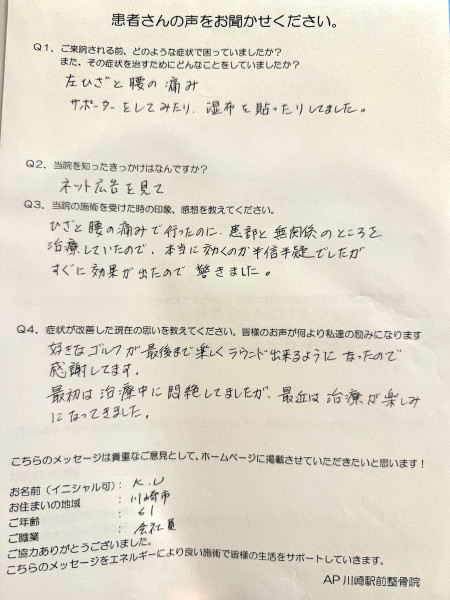 患者さんの声をお聞かせください。
Q1．ご来院される前、どのような症状で困っていましたか？
また、その症状を治すためにどんなことをしていましたか？
左ひざと腰の痛み
サポーターをしてみたり、湿布を貼ったりしてました。
Q2．当院を知ったきっかけはなんですか？
ネット広告を見て
Q3．当院の施術を受けた時の印象、感想を教えてください。
ひざと腰の痛みで行ったのに、患部と無関係のところを
治療していたので、本当に効くのか半信半疑でしたが
すぐに効果が出たので驚きました。
Q4．症状が改善した現在の思いを教えてください。皆様のお声が何より私達の励みになります
好きなゴルフが最後まで楽しくラウンド出来るようになったので
感謝してます。
最初は治療中に悶絶してましたが、最近は治療が楽しみ
になってきました。
こちらのメッセージは貴重なご意見として、ホームページに掲載させていただきたいと思います！
お名前（イニシャル可）：K.U
お住まいの地域：川崎市
ご年齢：61
ご職業：会社員
ご協力ありがとうございました。
こちらのメッセージをエネルギーにより良い施術で皆様の生活をサポートしていきます。
AP川崎駅前整骨院